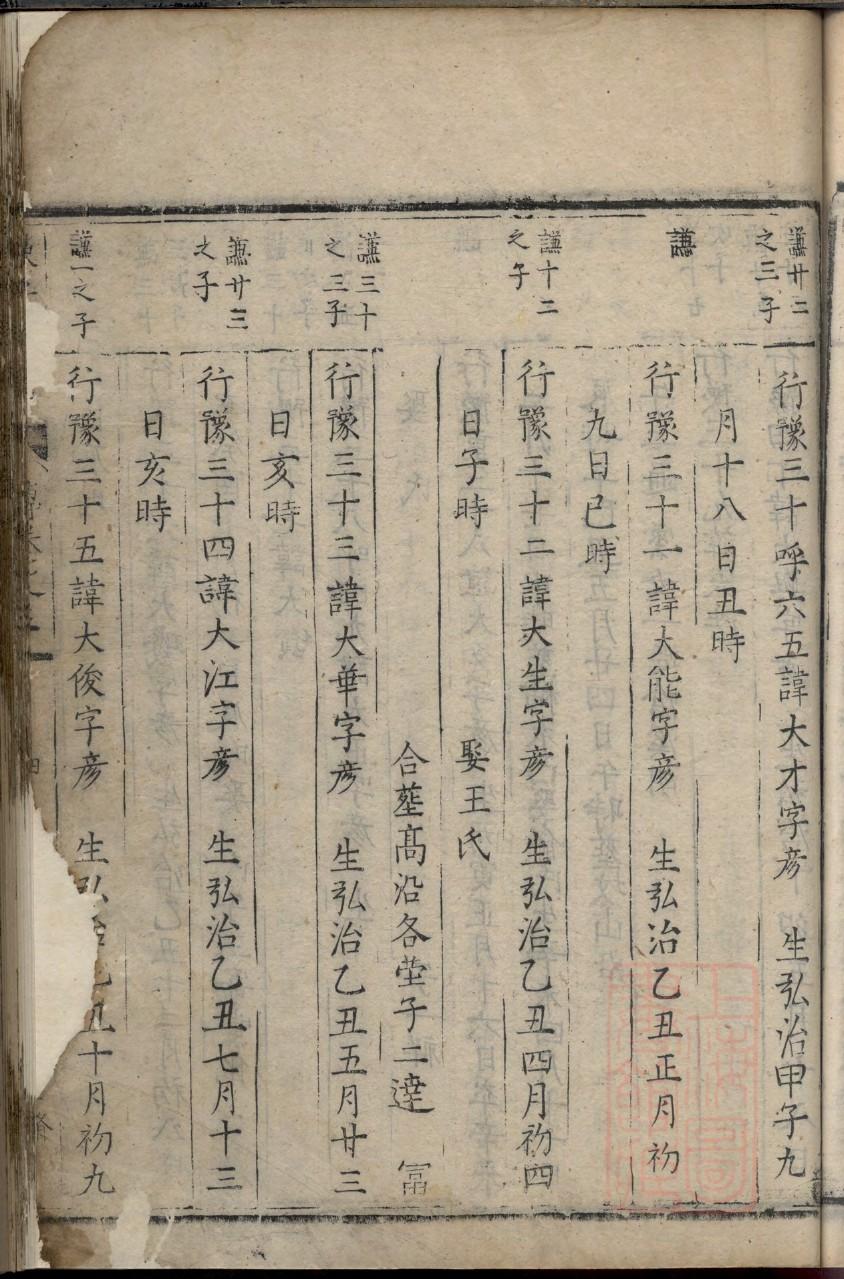 謙廿二
之三子
行豫三十呼六五諱大才字彦 生弘治甲子九
月十八日丑時
謙
行豫三十一諱大能字彦 生弘治乙丑正月初
九日巳時
謙十二
之子
行豫三十二諱大生字彦 生弘治乙丑四月初四
日子時 娶王氏
合塟髙沿各塋子二達 富
謙三十
之三子
行豫三十三諱大華字彦 生弘治乙丑五月廿三
日亥時
謙廿三
之子
行豫三十四諱大江字彦 生弘治乙丑七月十三
日亥時
謙一之子
行豫三十五諱大俊字彦 生弘治乙丑十月初九